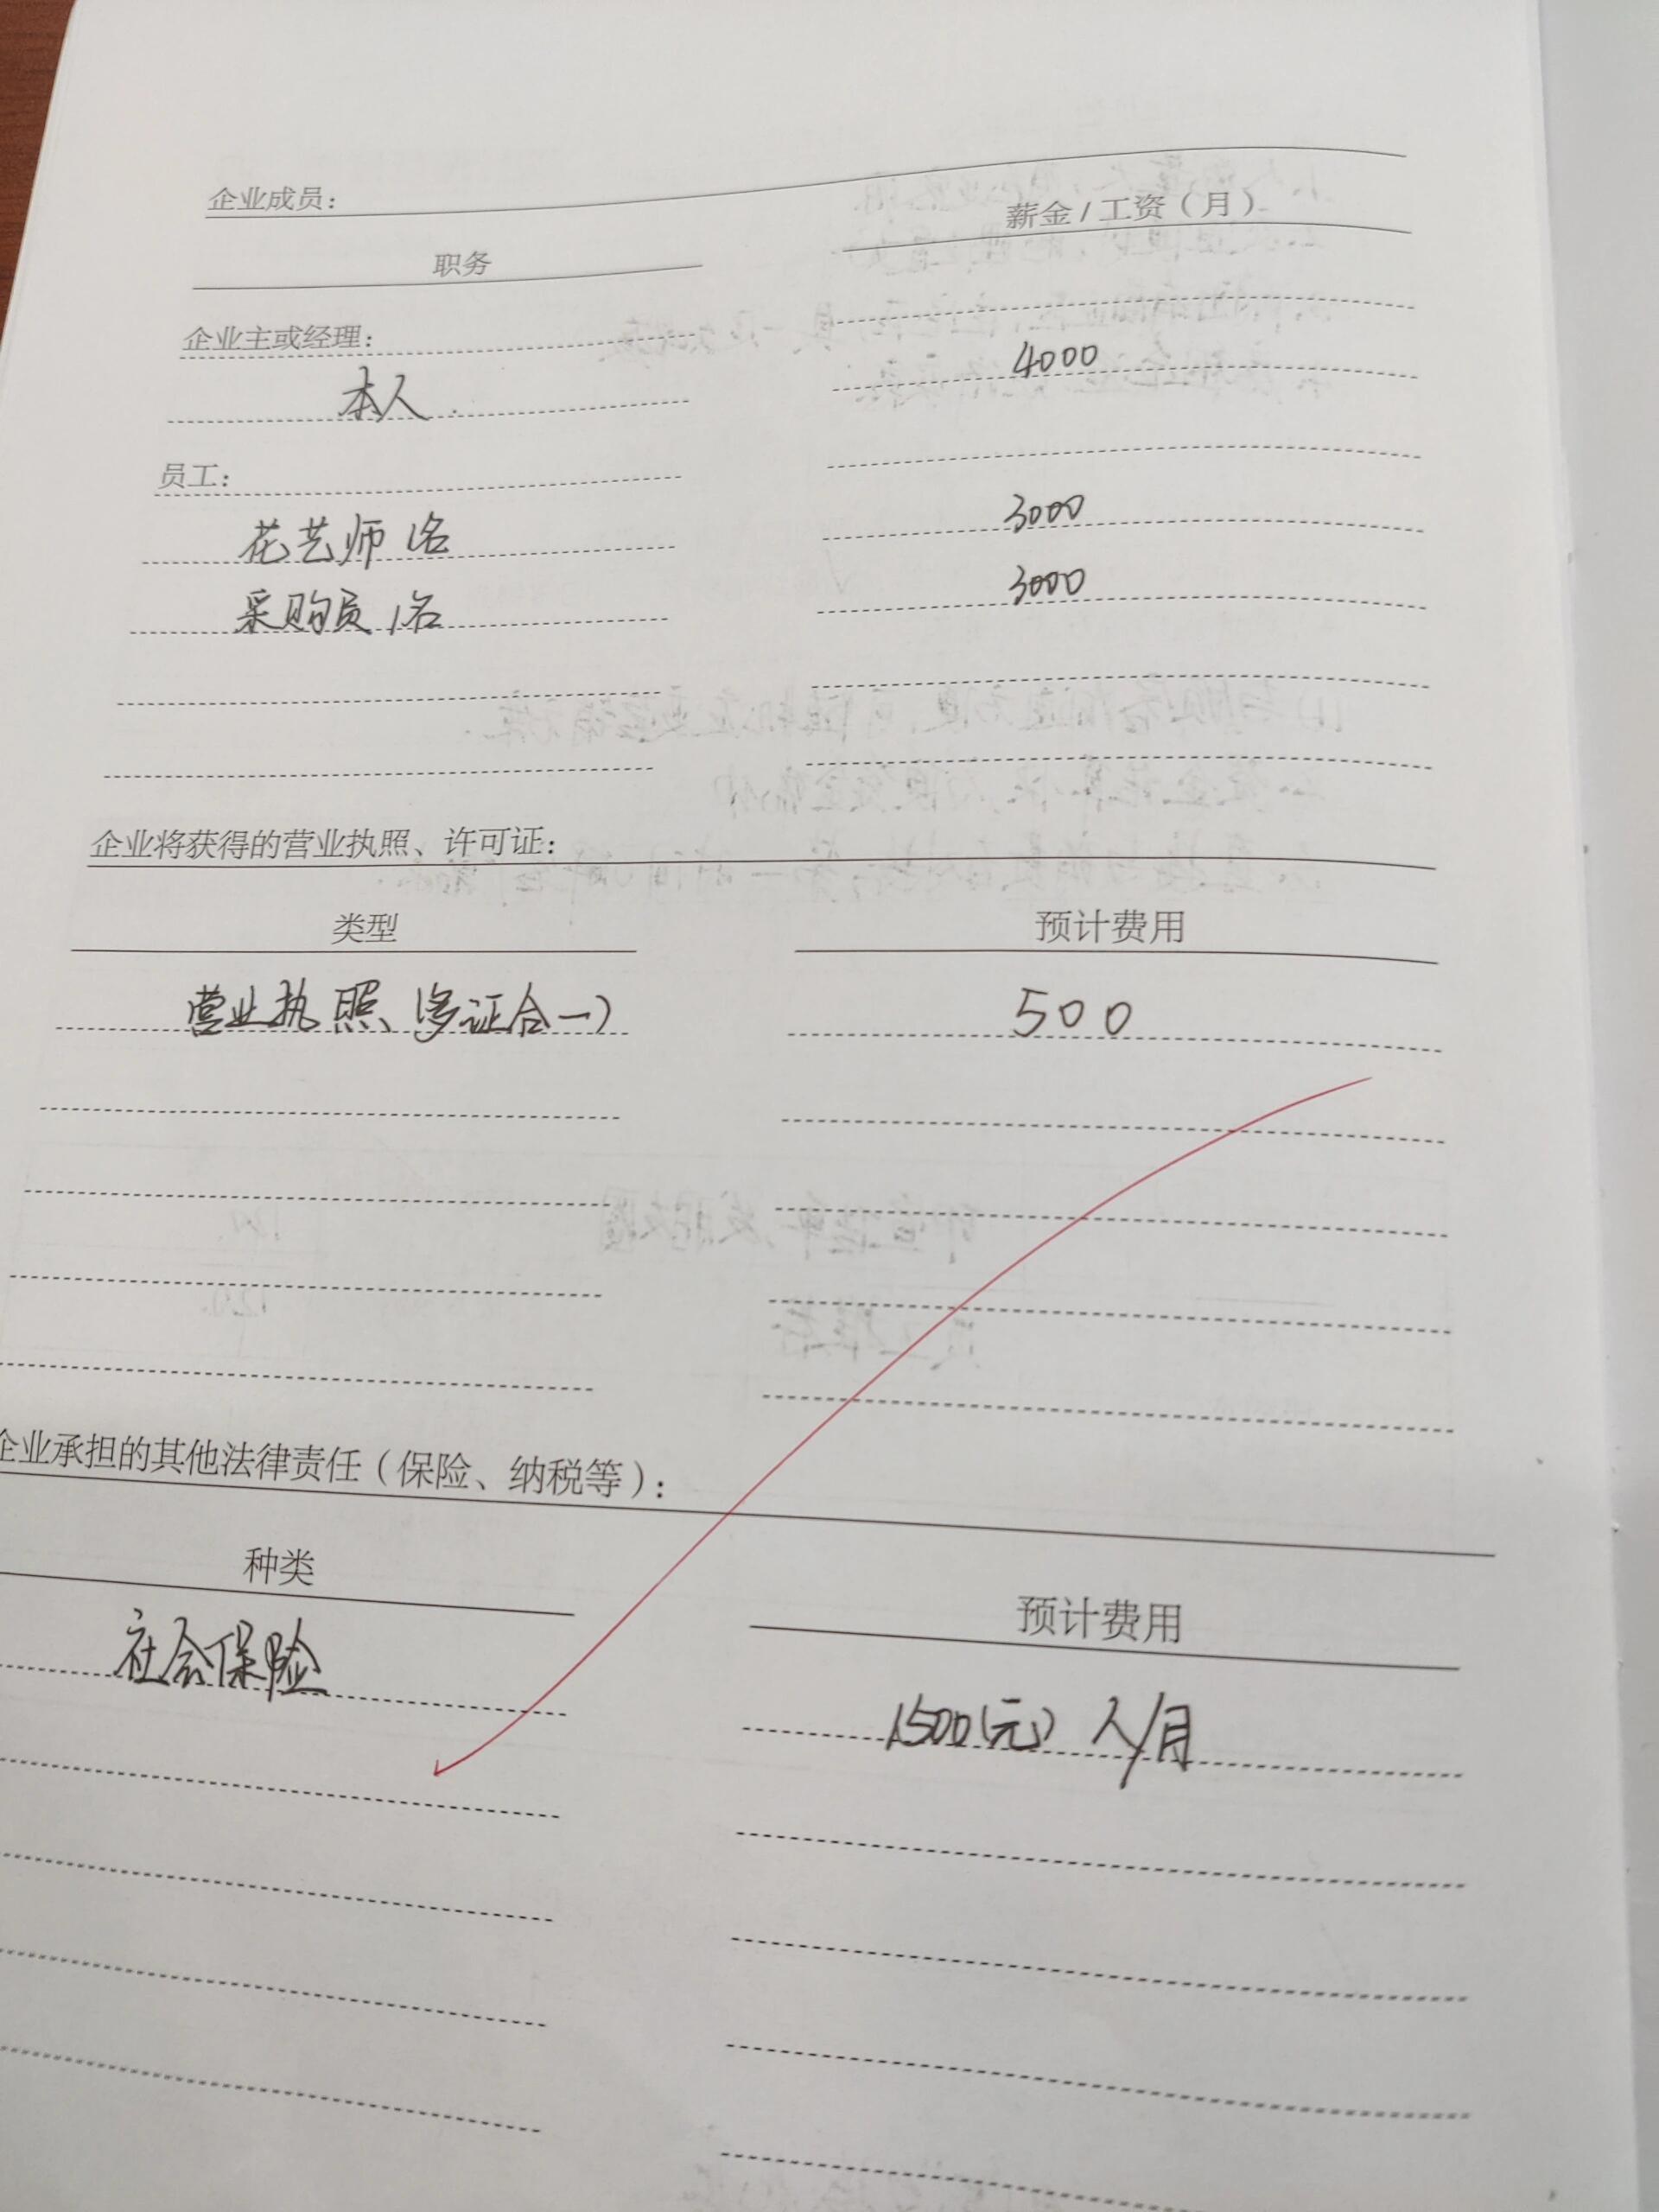 企业成员：
职务 薪金/工资（月）
企业主或经理：
本人 4000
员工：
花艺师1名 3000
采购员1名 3000
企业将获得的营业执照、许可证：
类型 预计费用
营业执照、(多证合一) 500
企业承担的其他法律责任（保险、纳税等）：
种类 预计费用
社会保险 1500(元) 人/月